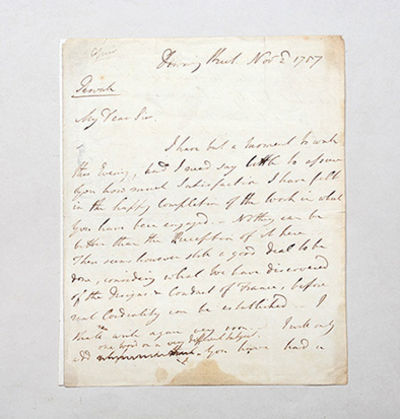 Copied
Downing Street Nov 2 1787
Private
My Dear Sir.
I have but a moment to write
this Evening, and I need say little to assure
You how much Satisfaction I have felt
in the happy Completion of the Work in which
You have been engaged. – Nothing can be
better than the Reception of it here
There seems however still a good deal to be
done, considering what We have discovered
of the Designs & Conduct of France, before
real Cordiality can be established. – I
shall write again very soon. I will only
add one word on a very difficult subject
You have had a